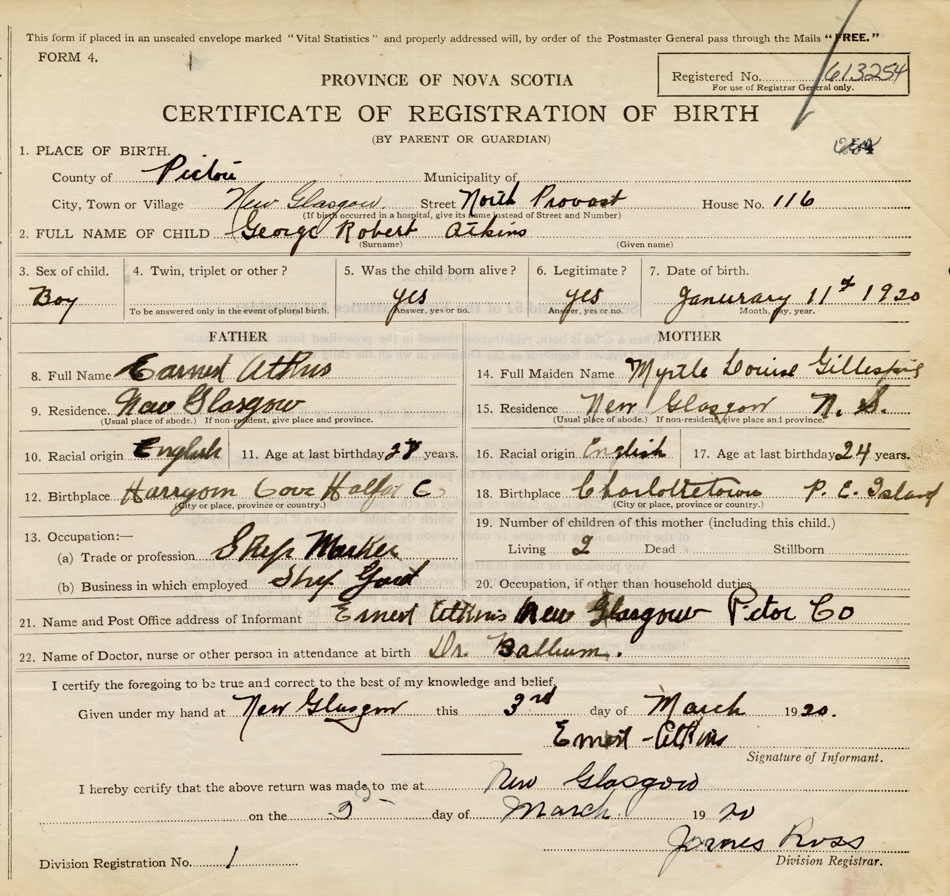 This form if placed in an unsealed envelope marked "Vital Statistics" and properly addressed will, by order of the Postmaster General pass through the Mails "FREE."
FORM 4.
PROVINCE OF NOVA SCOTIA
Registered No. 613254
For use of Registrar General only.
CERTIFICATE OF REGISTRATION OF BIRTH
(BY PARENT OR GUARDIAN)
254
1. PLACE OF BIRTH.
County of Pictou Municipality of
City, Town or Village New Glasgow. Street North Provost House No. 116
(If birth occurred in a hospital, give its name instead of Street and Number)
2. FULL NAME OF CHILD George Robert Atkins
(Surname) (Given name)
3. Sex of child. 4. Twin, triplet or other? 5. Was the child born alive? 6. Legitimate? 7. Date of birth.
Boy yes yes Janurary 11st 1920
To be answered only in the event of plural birth. Answer, yes or no. Answer, yes or no. Month, day, year.
FATHER MOTHER
8. Full Name Earnest Atkins 14. Full Maiden Name Myrtle Louise Gillespie
9. Residence. New Glasgow 15. Residence New Glasgow N. S.
(Usual place of abode.) If non-resident, give place and province. (Usual place of abode.) If non-resident, give place and province.
10. Racial origin English 11. Age at last birthday 28 years. 16. Racial origin English 17. Age at last birthday 24 years.
12. Birthplace Cove 18. Birthplace Charlottetown P. E. Island
(City or place, province or country.) (City or place, province or country.)
13. Occupation:— 19. Number of children of this mother (including this child.)
(a) Trade or profession Living 2 Dead Stillborn
(b) Business in which employed Ship 20. Occupation, if other than household duties
21. Name and Post Office address of Informant Ernest Atkins New Glasgow Pictor Co
22. Name of Doctor, nurse or other person in attendance at birth Dr.
I certify the foregoing to be true and correct to the best of my knowledge and belief,
Given under my hand at New Glasgow this 3rd day of March 1920.
Ernest Atkins
Signature of Informant.
I hereby certify that the above return was made to me at New Glasgow
on the 3d day of March 1920
James Ross
Division Registration No. 1 Division Registrar.